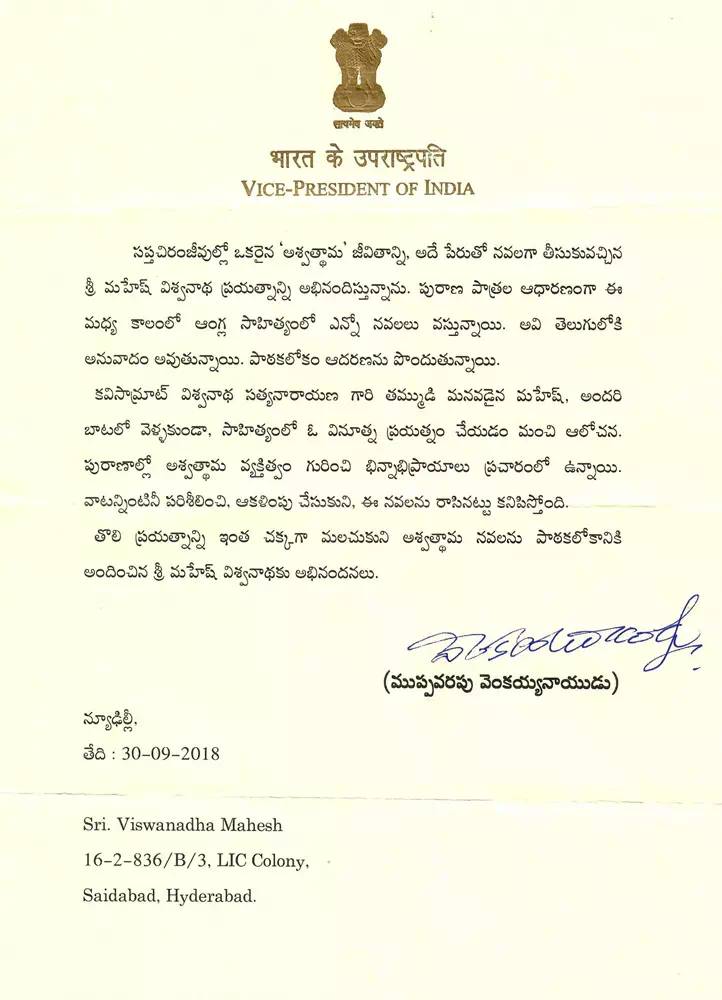 सत्यमेव जयते
भारत के उपराष्ट्रपति
VICE-PRESIDENT OF INDIA
సప్తచిరంజీవుల్లో ఒకరైన ‘అశ్వత్థామ’ జీవితాన్ని, అదే పేరుతో నవలగా తీసుకువచ్చిన
శ్రీ మహేష్ విశ్వనాథ ప్రయత్నాన్ని అభినందిస్తున్నాను. పురాణ పాత్రల ఆధారణంగా ఈ
మధ్య కాలంలో ఆంగ్ల సాహిత్యంలో ఎన్నో నవలలు వస్తున్నాయి. అవి తెలుగులోకి
అనువాదం అవుతున్నాయి. పాఠకలోకం ఆదరణను పొందుతున్నాయి.
కవిసామ్రాట్ విశ్వనాథ సత్యనారాయణ గారి తమ్ముడి మనవడైన మహేష్, అందరి
బాటలో వెళ్ళకుండా, సాహిత్యంలో ఓ వినూత్న ప్రయత్నం చేయడం మంచి ఆలోచన.
పురాణాల్లో అశ్వత్థామ వ్యక్తిత్వం గురించి భిన్నాభిప్రాయాలు ప్రచారంలో ఉన్నాయి.
వాటన్నింటినీ పరిశీలించి, ఆకళింపు చేసుకుని, ఈ నవలను రాసినట్టు కనిపిస్తోంది.
తొలి ప్రయత్నాన్ని ఇంత చక్కగా మలచుకుని అశ్వత్థామ నవలను పాఠకలోకానికి
అందించిన శ్రీ మహేష్ విశ్వనాథకు అభినందనలు.
(ముప్పవరపు వెంకయ్యనాయుడు)
న్యూఢిల్లీ,
తేది : 30-09-2018
Sri. Viswanadha Mahesh
16-2-836/B/3, LIC Colony,
Saidabad, Hyderabad.